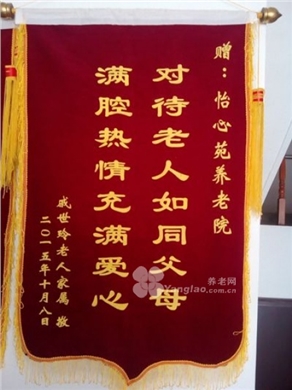 赠：怡心苑养老院
对待老人如同父母
满腔热情充满爱心
戚世玲老人家属 敬
二〇一五年十月八日
养老网
Yanglao.com.cn